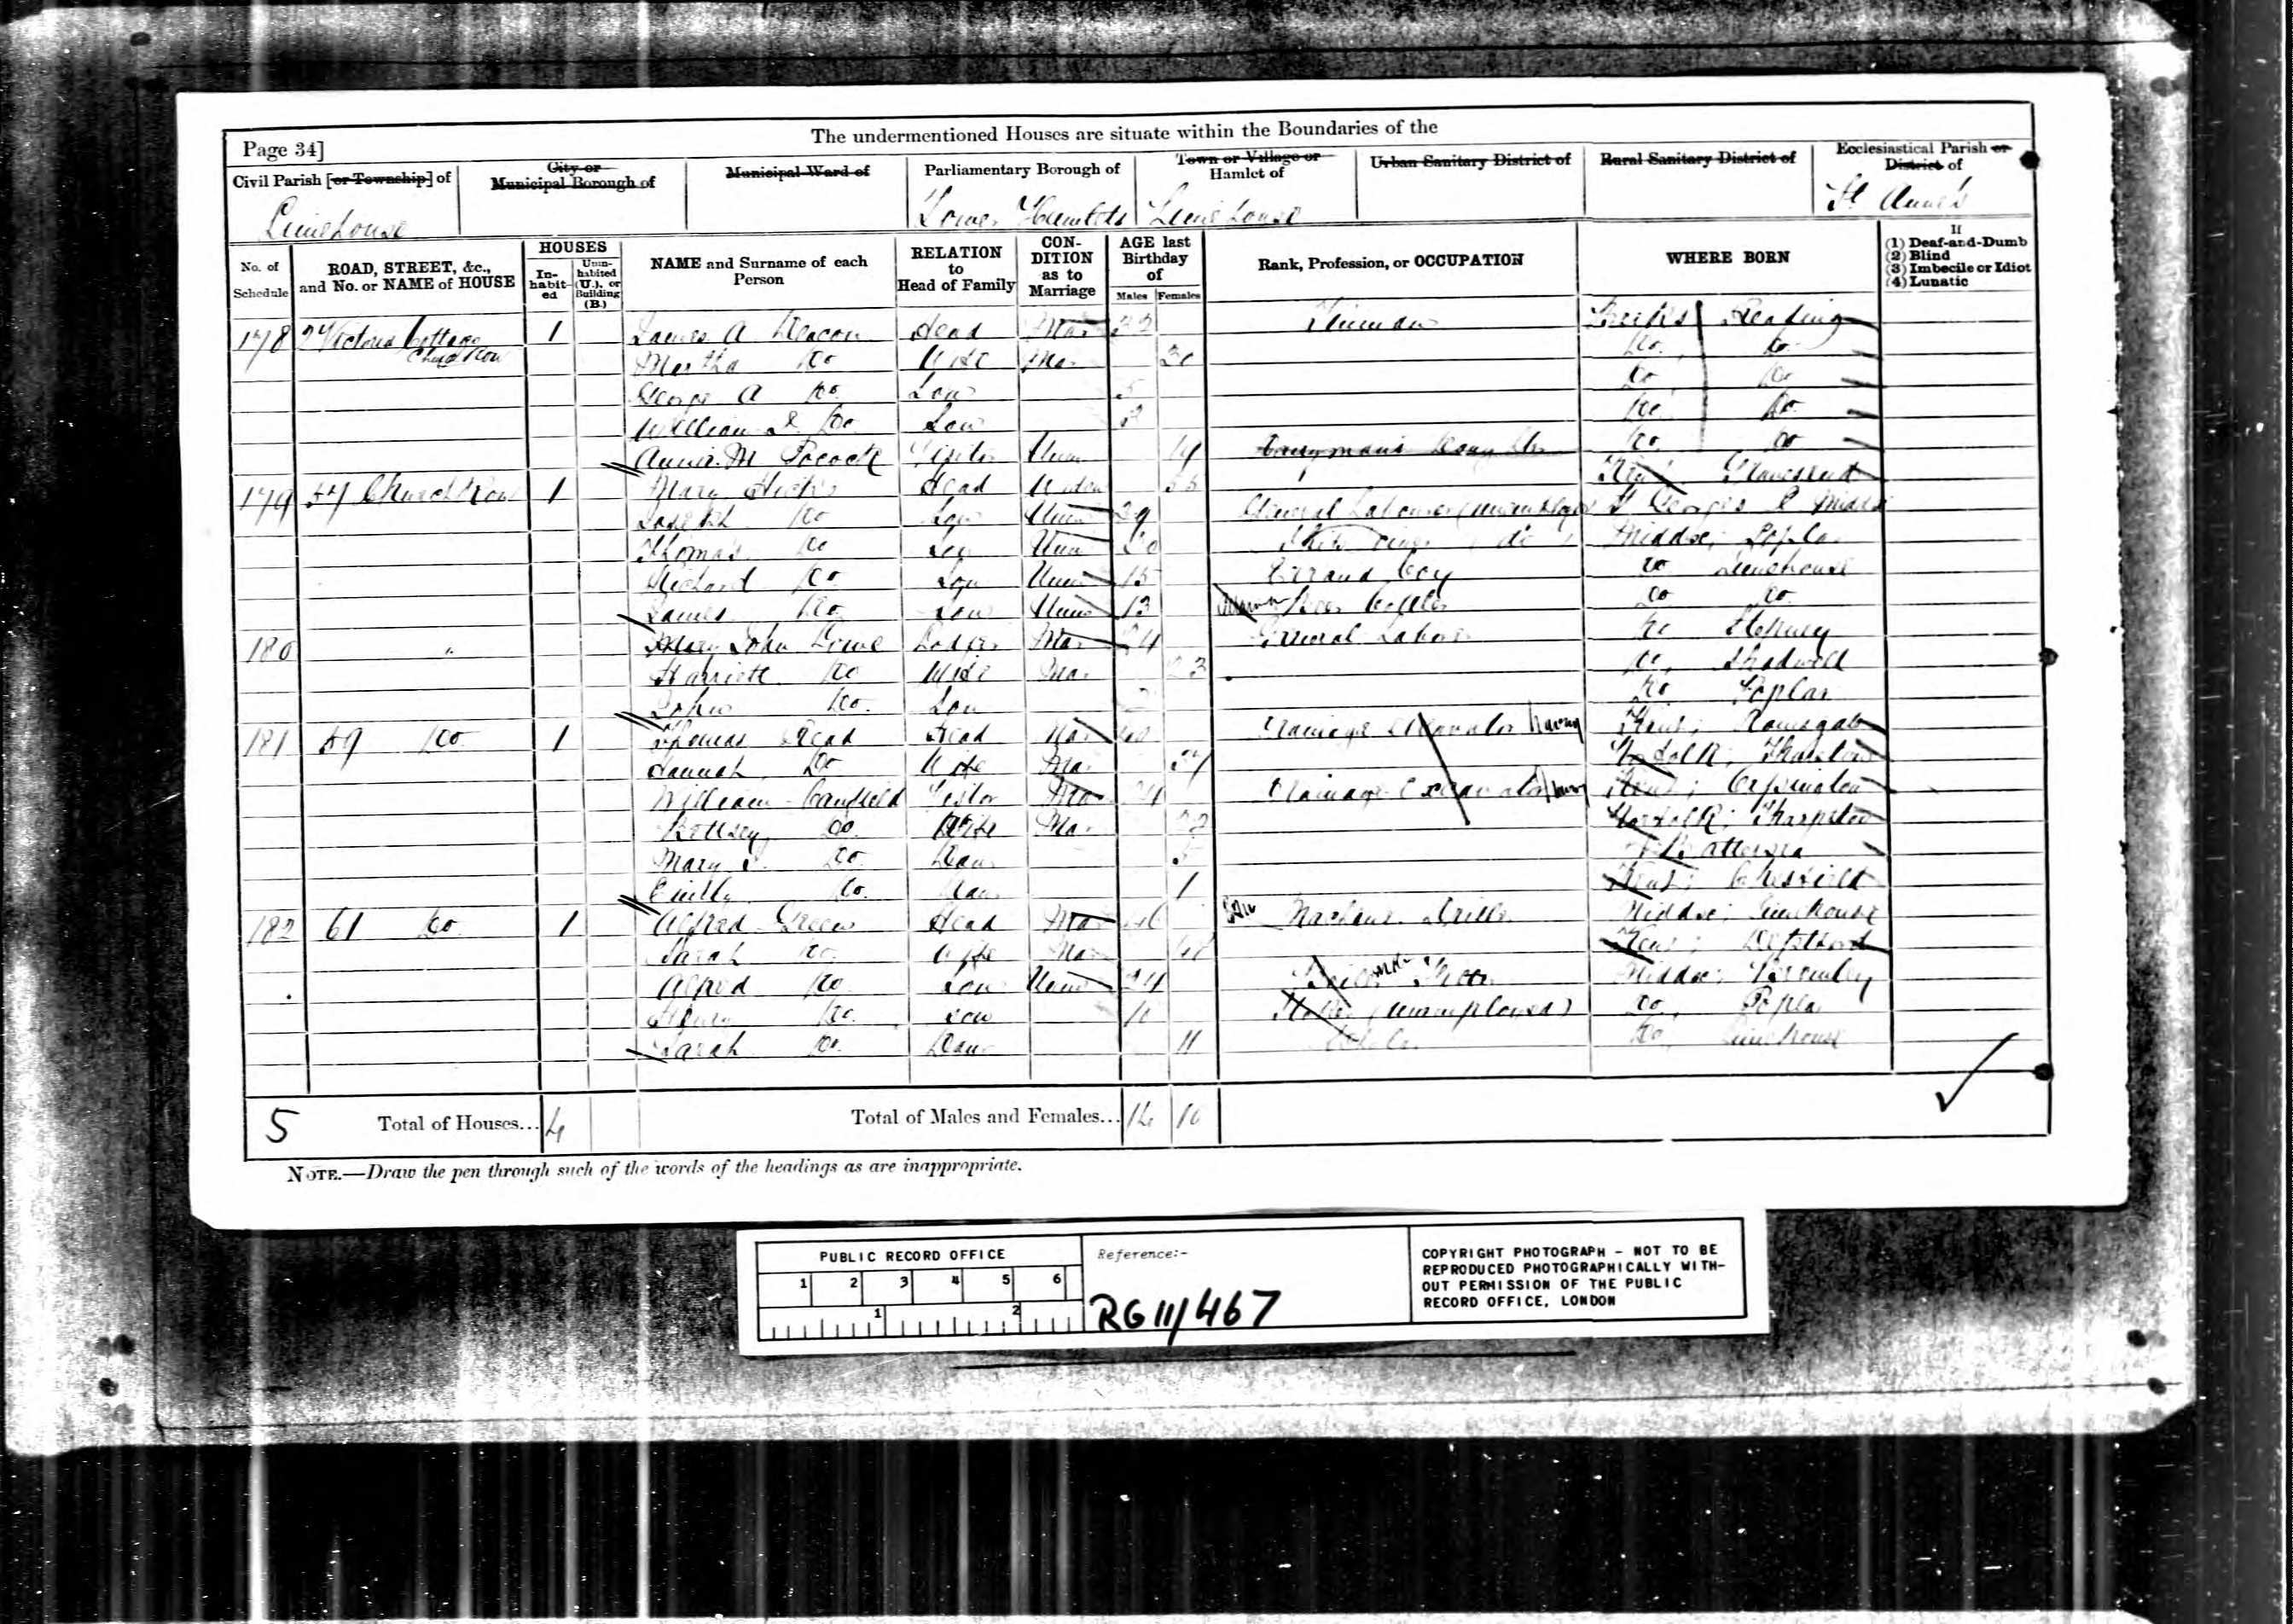 The undermentioned Houses are situate within the Boundaries of the
Page 34]
Civil Parish [or Township] of
City or Municipal Borough of
Municipal Ward of
Parliamentary Borough of
Town or Village or Hamlet of
Urban Sanitary District of
Rural Sanitary District of
Ecclesiastical Parish or District of
Limehouse
Tower Hamlets
Limehouse
St Anne's
No. of Schedule
ROAD, STREET, &c., and No. or NAME of HOUSE
HOUSES
In-habit-ed
Unin-habited (U.), or Building (B.)
NAME and Surname of each Person
RELATION to Head of Family
CON-DITION as to Marriage
AGE last Birthday of
Males
Females
Rank, Profession, or OCCUPATION
WHERE BORN
If
(1) Deaf-and-Dumb
(2) Blind
(3) Imbecile or Idiot
(4) Lunatic
178 2 Victoria Cottage 1 James A Deacon Head Mar 32 Berks Reading
Church Row
Martha Do Wife Mar 30 Do Do
George A Do Son 5 Do Do
William Do Son Do Do
Annie M Pocock Visitor Unm 19 Do Do
179 57 Church Row 1 Mary Head Widow 55 Kent Gravesend
Joseph Do Son Unm 29 General Labourer St Georges E Middx
Thomas Do Son Unm 20 do Middsx; Poplar
Richard Do Son Unm 15 Errand boy Do Limehouse
James Do Son Unm 13 Do Do
180 " John Lodger Mar 24 General Labour Do Stepney
Harriett Do Wife Mar 23 Do Shadwell
John Do Son 2 Do Poplar
181 59 Do 1 Thomas Read Head Mar 40 Drainage Excavator Kent; Ramsgate
Hannah Do Wife Mar 37 Norfolk;
William Canfield Visitor Mar 24 Drainage Excavator Kent; Orpington
Bettsey Do Wife Mar 22 Norfolk;
Mary Do Daur Battersea
Emily Do Daur 1 Kent; Chelsfield
182 61 Do 1 Alfred Green Head Mar 46 Machine Driller Middsx; Limehouse
Sarah Do Wife Mar Kent; Deptford
Alfred Do Son Unm 24 Middsx; Bromley
Henry Do Son (unemployed) Do Poplar
Sarah Do Daur 11 Do Limehouse
5 Total of Houses... 4 Total of Males and Females... 14 10
NOTE.—Draw the pen through such of the words of the headings as are inappropriate.
PUBLIC RECORD OFFICE
1 2 3 4 5 6
1 2
Reference:-
RG 11/467
COPYRIGHT PHOTOGRAPH - NOT TO BE
REPRODUCED PHOTOGRAPHICALLY WITH-
OUT PERMISSION OF THE PUBLIC
RECORD OFFICE, LONDON